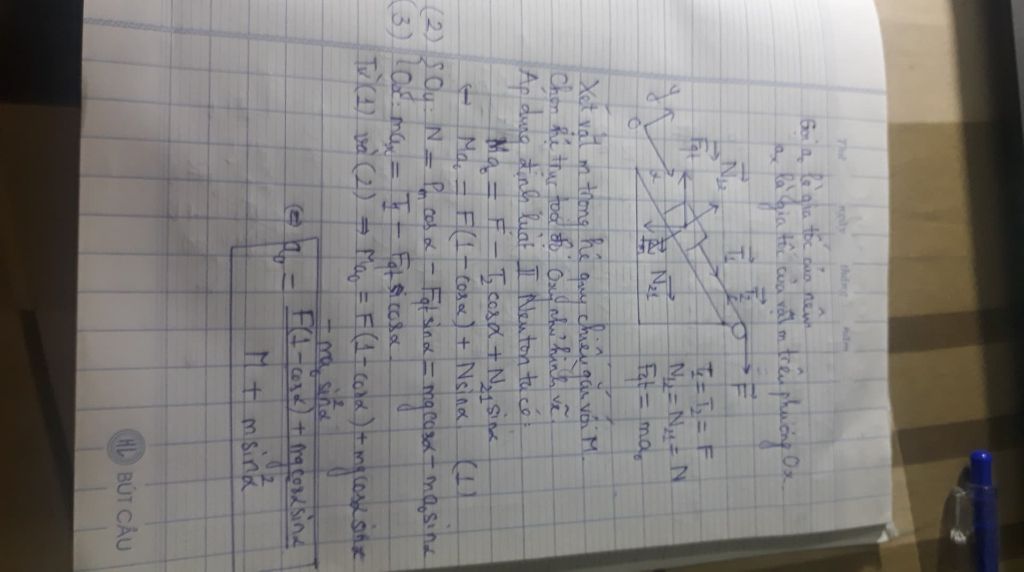 Thứ ngày tháng năm
Gọi a₀ là gia tốc của nêm
aₓ là gia tốc của vật m trên phương Ox.
y
O
α
F⃗qt
N⃗12
T⃗1
T⃗2
F⃗
N⃗21
T1 = T2 = F
N12 = N21 = N
Fqt = ma₀
Xét vật m trong hệ quy chiếu gắn với M.
Chọn hệ trục toạ độ Oxy như hình vẽ.
Áp dụng định luật II Newton ta có:
Ma₀ = F - T2 cosα + N21 sinα
Ma₀ = F(1 - cosα) + Nsinα (1)
(2) { Oy: N = P cosα - Fqt sinα = mgcosα - ma₀ sinα
(3) { Ox: maₓ = T1 - Fqt cosα
Từ (1) và (2) ⇒ Ma₀ = F(1 - cosα) + mg cosα sinα
- ma₀ sin²α
⇔ a₀ = F(1 - cosα) + mgcosαsinα
M + msin²α
HL BÚT CÂU